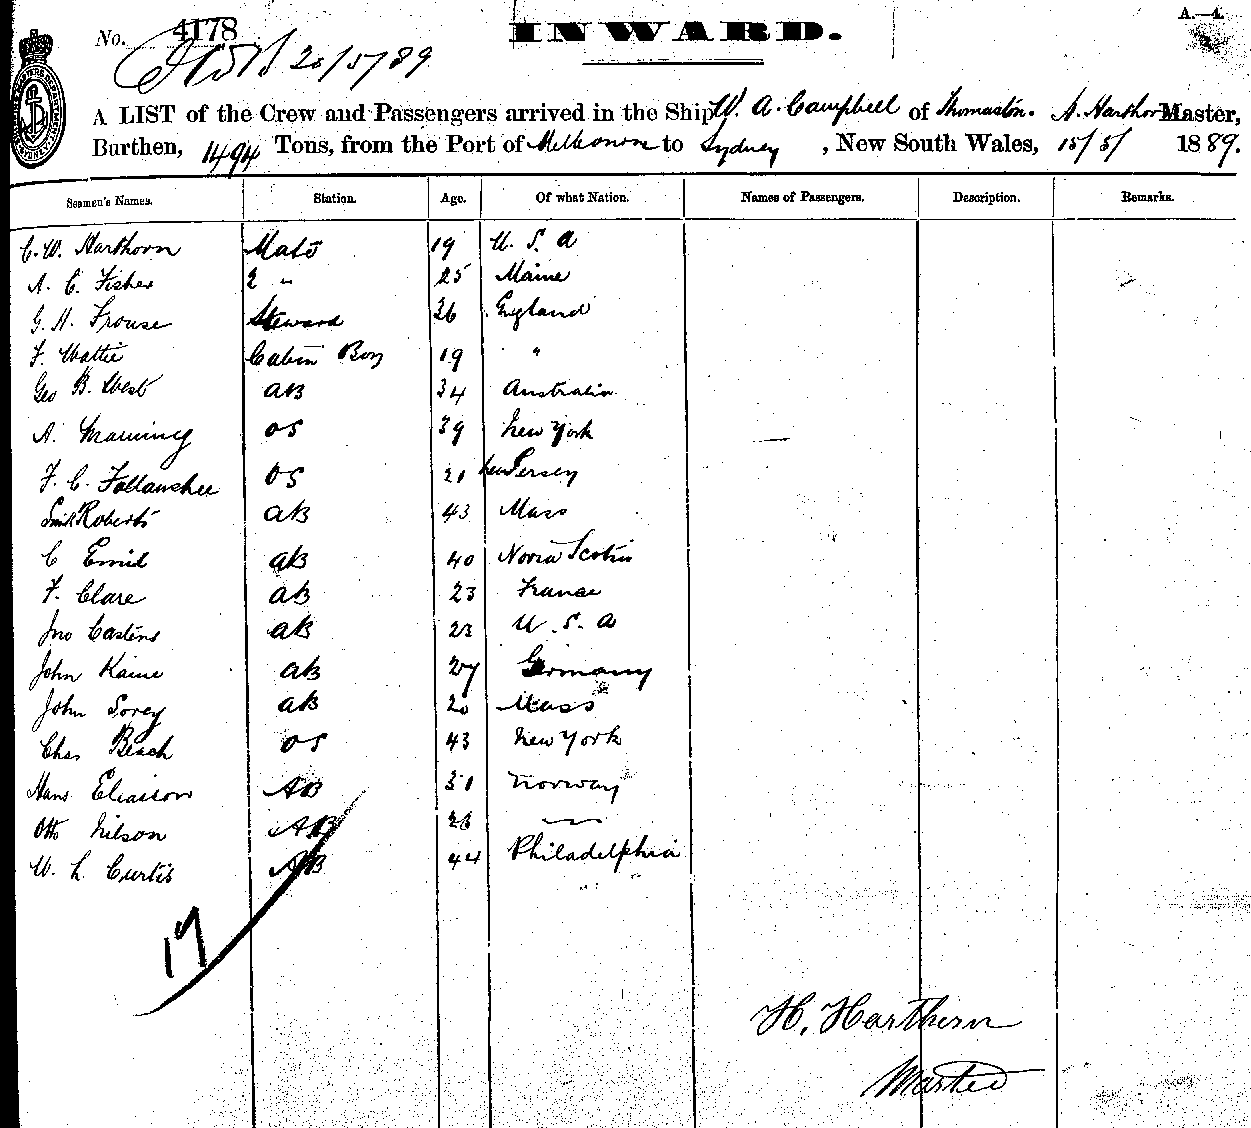 A.—4.
No. 4178
INWARD.
20/5/89
A LIST of the Crew and Passengers arrived in the Ship W. A. Campbell of Thomaston. Master,
Burthen, 1494 Tons, from the Port of Melbourne to Sydney, New South Wales, 15/5/ 1889.
Seamen's Names. Station. Age. Of what Nation. Names of Passengers. Description. Remarks.
C. W. Harthorn Mate 19 U. S. A
A. C. Fisher 2 " 25 Maine
G. H. Frouse Steward 36 England
F. Wattie Cabin Boy 19 "
Geo B. West AB 34 Australia
A. Manning OS 39 New York
F. C. Follanshee OS 21 New Jersey
Roberts AB 43 Mass
C Emil AB 40 Nova Scotia
F. Clare AB 23 France
Jno Castens AB 23 U. S. A
John Kaine AB 27 Germany
John Sorey AB 20 Mass
Chas Beach OS 43 New York
Hans Eliasson AB 31 Norway
Otto Nilson AB 26
W. L. Curtis AB 44 Philadelphia
17
H. Harthern
Master